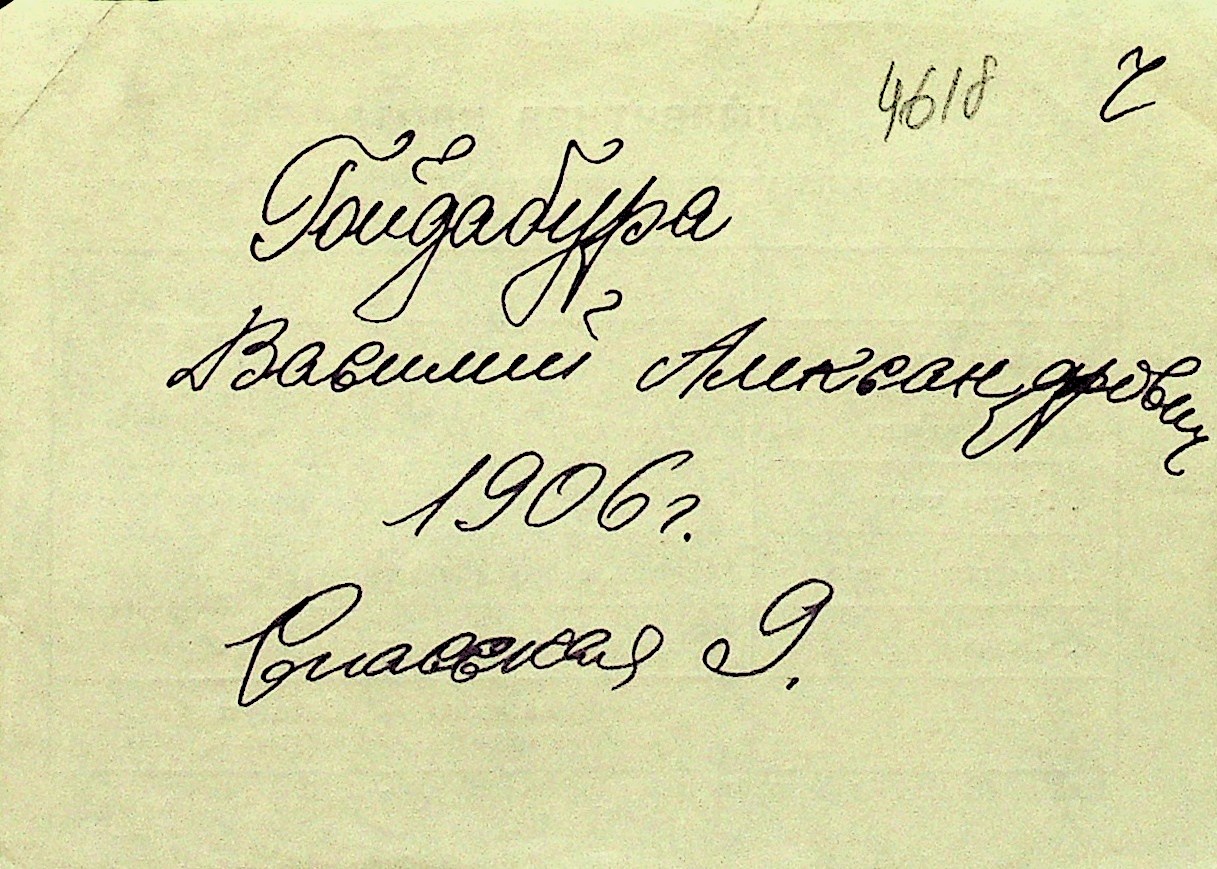 4618 ч
Гойдабура
Василий Александрович
1906г.
Спасская 9.